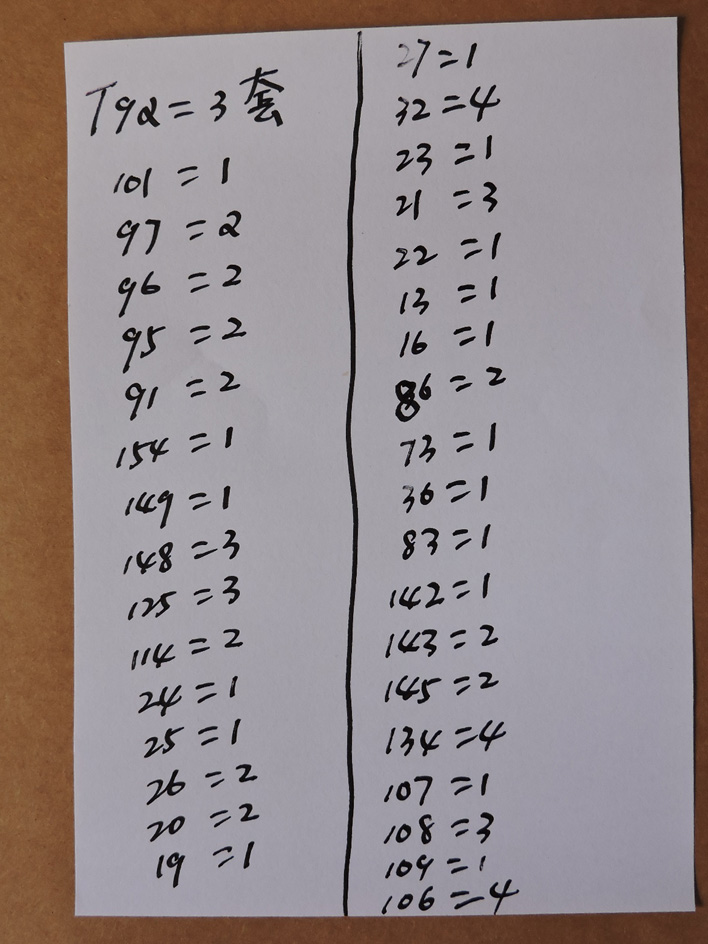 T92=3套
101=1
97=2
96=2
95=2
91=2
154=1
149=1
148=3
125=3
114=2
24=1
25=1
26=2
20=2
19=1
27=1
32=4
23=1
21=3
22=1
13=1
16=1
86=2
73=1
36=1
83=1
142=1
143=2
145=2
134=4
107=1
108=3
109=1
106=4